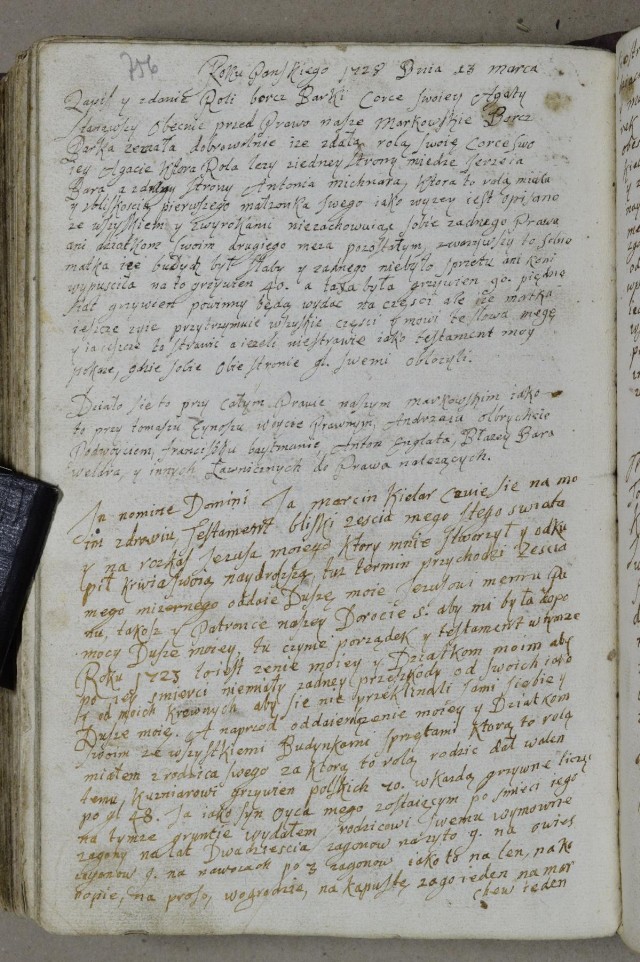 756
Roku Panskiego 1728 Dnia 13 marca
Zapis y zdanie Roli borcz Barki Corce swoiey Agaty
stanąwszy Obecnie przed Prawo nasze Markowskie Borcz
Barka zeznała dobrowolnie ize zdała rolą swoię Corce swo
iey Agacie ktora Rola lezy ziedney strony miedze
Bara a zdrugiy strony Antonia michnara, ktora to rolą miała
y zbliskoscią pierwszego małzonka swego iako wyzey iest opisano
ze wszystkiem y niezachowuiąc sobie zadnego Prawa
ani dziatkom swoim drugiego męza pozostałym, zwazywszy to sobie
matka ize budynk był słaby y zadnego niebyło sprzętu ani koni
wypusciła na to grzywien 40. a taxa była grzywien 90. piędzie
siąt grzywien powinny będą wydac na częsci ale ize matka
ieszcze zyie przytrzymuie wszystkie częsci y mowi te słowa mogę
y ia ieszcze to strawic a iezeli niestrawie iako testament moy
pokaze, gdzie sobie obie stronie gł. swemi obłozyli.
Działo się to przy całym Prawie naszym markowskim iako
to przy tomaszu woycie Prawnym, Andrzeiu Olbrychcie
Podwoycim, franciszku baytmanie, Anton Szglata, Błazey Bara
weldra, y innych Ławnicznych do Prawa nalezących.
In nomine Domini Ja marcin Kielar czuie sie na mo
im zdrowiu, testament bliski zescia mego stego swiata
y na rozkaz Jezusa moiego ktory mnie stworzył y odku
pił krwią swoią naydrozszą, tuz termin przychodzi zescia
mego mizernego oddaie Duszę moie Jezusowi memu
nu, takosz y Patronce naszey Dorocie s. aby mi była dopo
mocy Duszy moiey, tu czynie porządek y testament
Roku 1723 to iest zenie moiey y Dziatkom moim aby
po iey smierci niemiały zadney przeszkody od swoich iako
y od moich krewnych aby sie nie przeklinali sami siebie y
Duszę moię. A naprzod oddaiem zenie moiey y Dziatkom
swoim ze wszystkiemi Budynkami sprzętami ktorą to rolą
miałem zrodzica swego za ktorą to rolą rodzic dał walen
temu, kuzniarowi grzywien polskich 70. w kazdą grzywnę licząc
po gł. 48. Ja iako syn Oyca mego zostaiączym po smierci iego
na tymze gruncie wydałem rodzicowi swemu wymowne
zagony na lat Dwadziescia zagonow nazyto 9. na owies
zagonow 9. na nawozach po 3 zagonow iako to na len, na ko
nopie, na proso, wogrodzie, na kapustę zagon ieden na mar
chew ieden